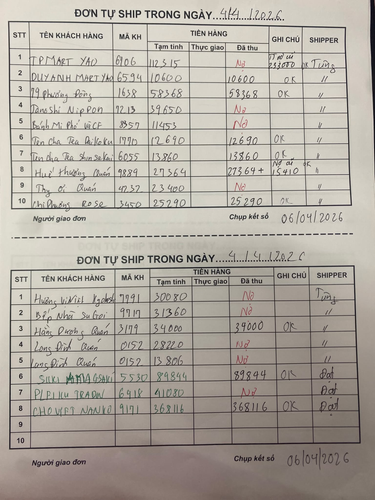 ĐƠN TỰ SHIP TRONG NGÀY 4/4/2026
STT TÊN KHÁCH HÀNG MÃ KH TIỀN HÀNG GHI CHÚ SHIPPER
Tạm tính Thực giao Đã thu
1 TPMART YAO 6906 112315 Nợ Tùng
2 DUYANH MART YAO 6594 10600 10600 OK "
3 79 phương Đông 1638 58368 58368 OK "
4 Tanoshi Nippon 9213 39650 Nợ "
5 Bánh Mì Phố 8357 11453 Nợ "
6 Tiên Cha Tea 1770 12690 12690 OK "
7 Tiên Cha Tea Shinsekai 6055 13860 13860 OK "
8 Huế Thương Quán 9889 27364 27364+ Nợ cũ 15410 "
9 Thy ơi Quán 4737 23400 Nợ "
10 Chi Phương ROSE 3450 25290 25290 OK "
Người giao đơn Chụp kết sổ 06/04/2026
ĐƠN TỰ SHIP TRONG NGÀY 4/4/2026
STT TÊN KHÁCH HÀNG MÃ KH TIỀN HÀNG GHI CHÚ SHIPPER
Tạm tính Thực giao Đã thu
1 Hương 7991 30080 Nợ Tùng
2 Bếp Nhà Sa Goi 9917 31360 Nợ "
3 Hằng Dương Quán 3179 34000 34000 OK "
4 Long Đình Quán 0152 28220 Nợ "
5 Long Đình Quán 0152 13806 Nợ "
6 5530 89844 89844 OK Đạt
7 6918 41080 Nợ Đạt
8 CHO VIET NANKO 9171 368116 368116 OK Đạt
9
10
Người giao đơn Chụp kết sổ 06/04/2026